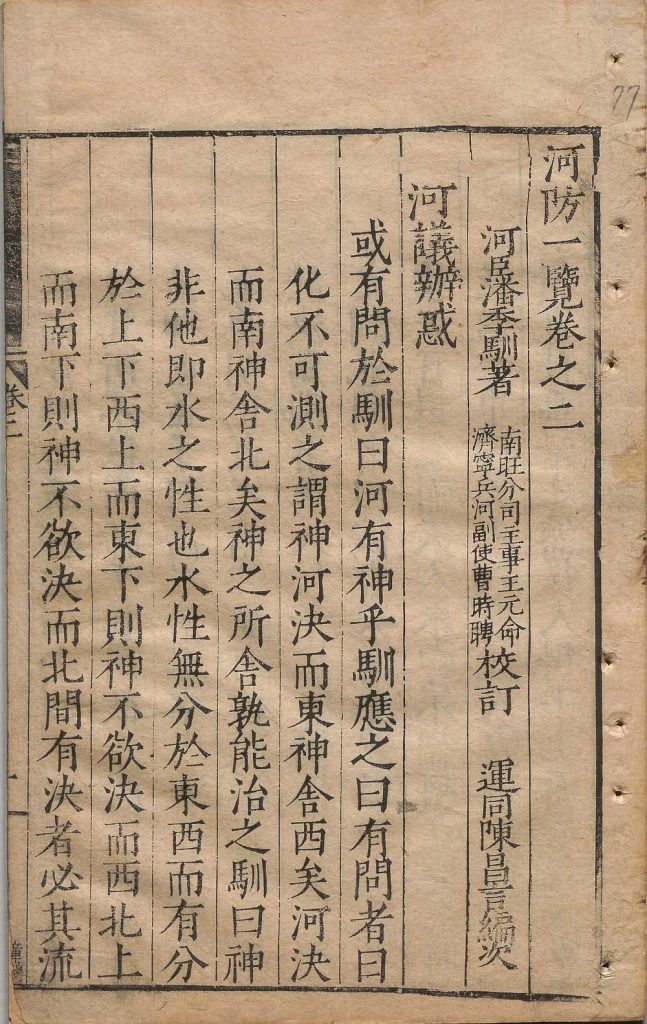 77
河防一覽卷之二
河臣潘季馴著 南旺分司主事王元命
濟寧兵河副使曹時聘 校訂 運同陳昌言編次
河議辦惑
或有問於馴曰河有神乎馴應之曰有問者曰
化不可測之謂神河決而東神舍西矣河決
而南神舍北矣神之所舍孰能治之馴曰神
非他即水之性也水性無分於東西而有分
於上下西上而東下則神不欲決而西北上
而南下則神不欲決而北間有決者必其流
卷二
一